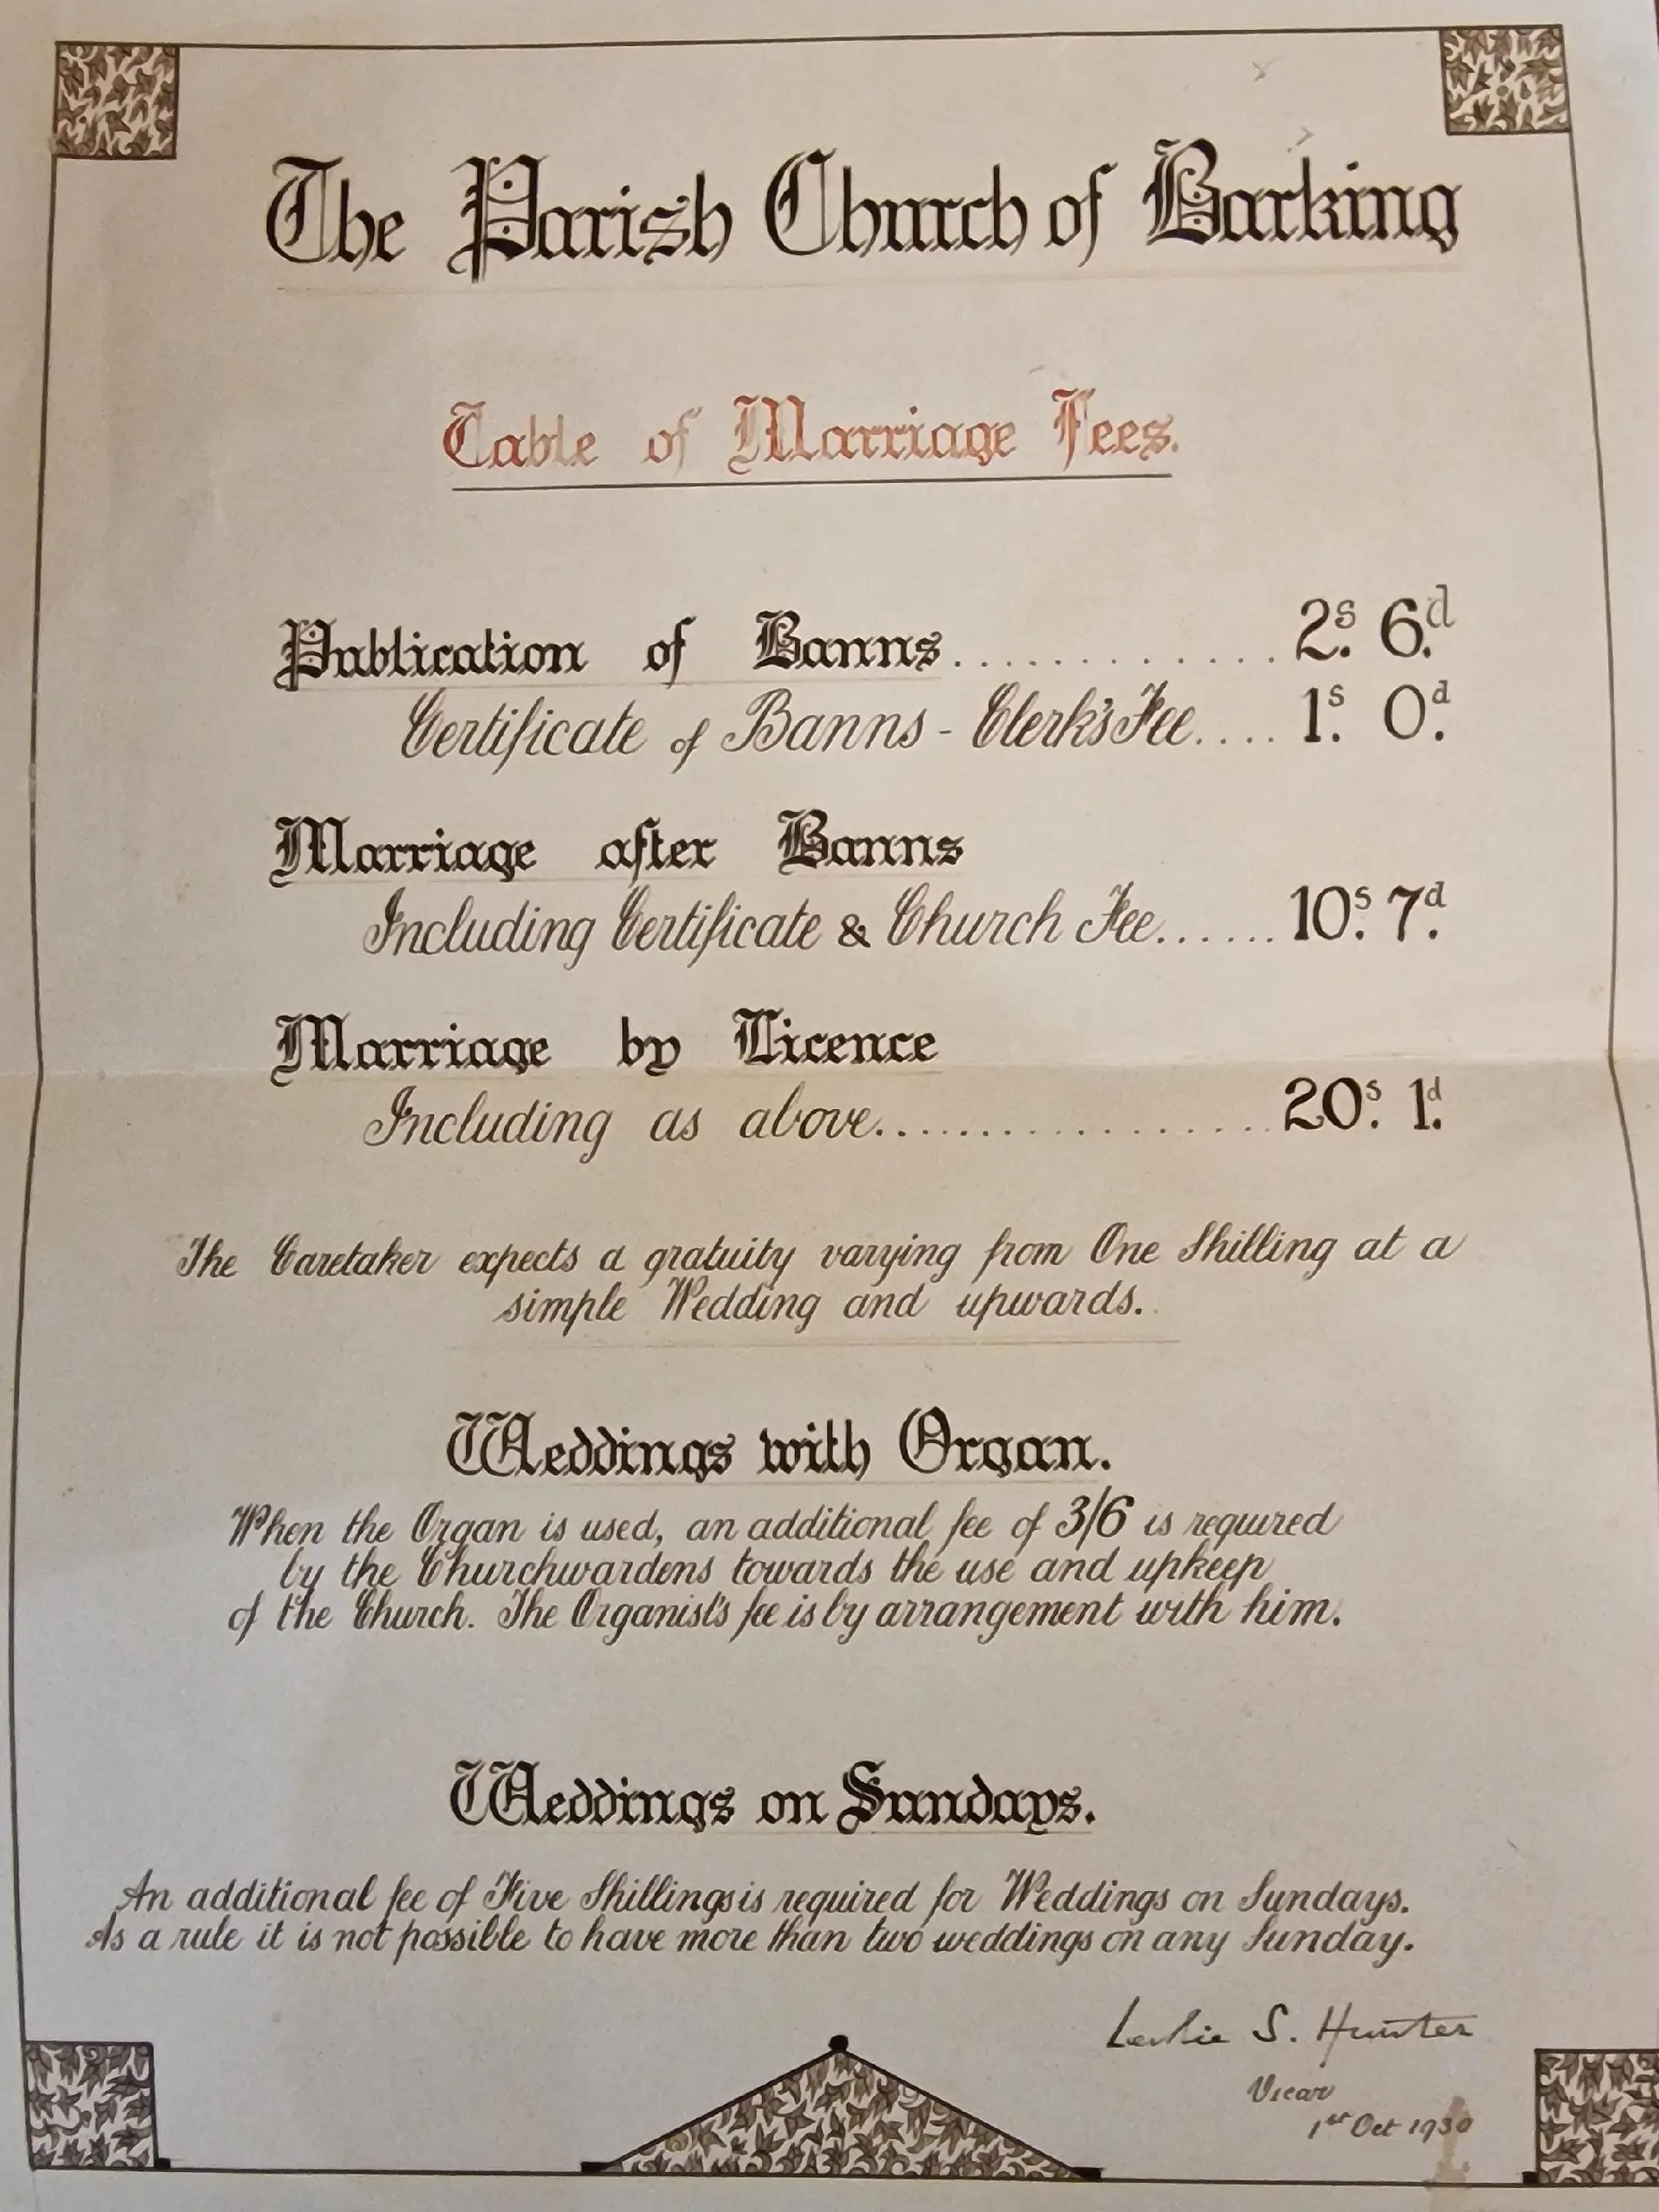 The Parish Church of Barking
Table of Marriage Fees.
Publication of Banns.............. 2s. 6d.
Certificate of Banns - Clerk's Fee.... 1s. 0d.
Marriage after Banns
Including Certificate & Church Fee...... 10s. 7d.
Marriage by Licence
Including as above.................. 20s. 1d.
The Caretaker expects a gratuity varying from One Shilling at a
simple Wedding and upwards.
Weddings with Organ.
When the Organ is used, an additional fee of 3/6 is required
by the Churchwardens towards the use and upkeep
of the Church. The Organist's fee is by arrangement with him.
Weddings on Sundays.
An additional fee of Five Shillings is required for Weddings on Sundays.
As a rule it is not possible to have more than two weddings on any Sunday.
Leslie S. Hunter
Vicar
1st Oct 1930